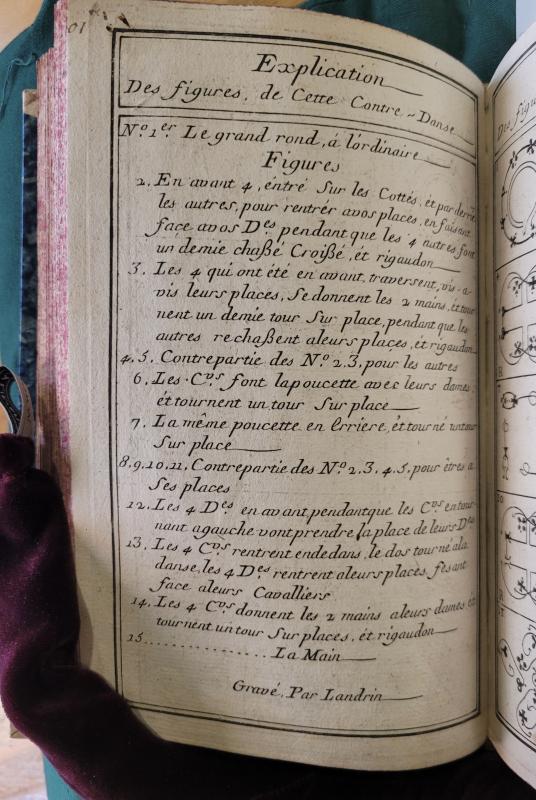 01
Explication
Des figures, de Cette Contre-Danse
N.º 1.er Le grand rond, á l'ordinaire
Figures
2. En avant 4, éntré Sur les Cottés, ét par derrie
les autres, pour rentrér avos places, en faisant
face avos D.es pendant que les 4 autres, font
un demie chaßé Croißé, ét rigaudon
3. Les 4 qui ont été en avant, traversent, vis-a-
vis leurs places, Se donnent les 2 mains, ét tour
nent un demie tour Sur place, pendant que les
autres rechaßent aleurs places, ét rigaudon
4.5. Contrepartie des N.º 2.3, pour les autres
6. Les C.vs font lapoucette avec leurs dames,
ét tournent un tour Sur place
7. La même poucette en érriere, ét tourné un tour
Sur place
8.9.10.11. Contrepartie des N.º 2.3.4.5, pour êtres a
Ses places
12. Les 4 D.es en avant pendantque les C.vs en tour-
nant agauche vont prendre la place de leurs D.es
13. Les 4 C.vs rentrent endedans, le dos tourné ala
danse, les 4 D.es rentrent aleurs places, fesant
face aleurs Cavalliers
14. Les 4 C.vs donnent les 2 mains aleurs dames, ét
tournent un tour Sur places, ét rigaudon
15 ................ La Main
Gravé, Par Landrin
Des figu